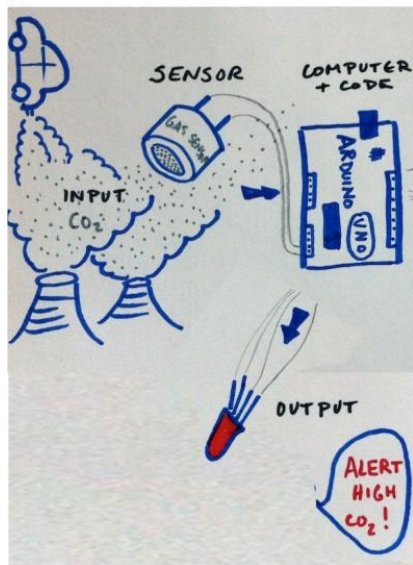 SENSOR
COMPUTER
+ CODE
GAS SENSOR
ARDUINO
UNO
INPUT
CO₂
OUTPUT
ALERT
HIGH
CO₂!